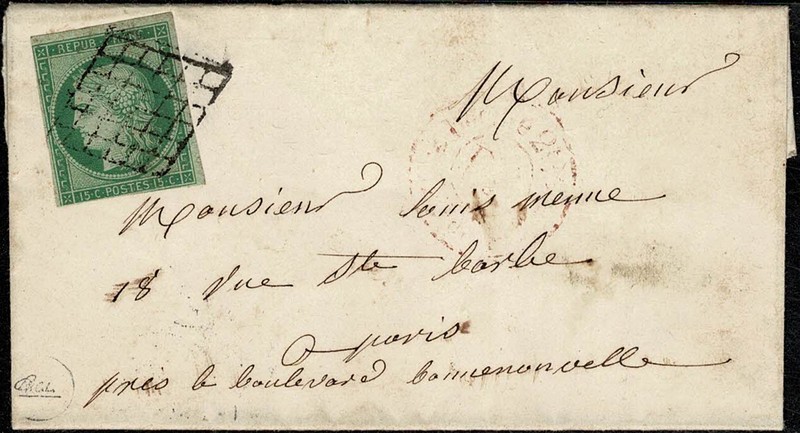 REPUB
15·C·POSTES·15·C·
Monsieur
Monsieur louis menne
18 rue Ste barbe
a paris
pres le boulevard bonnenouvelle